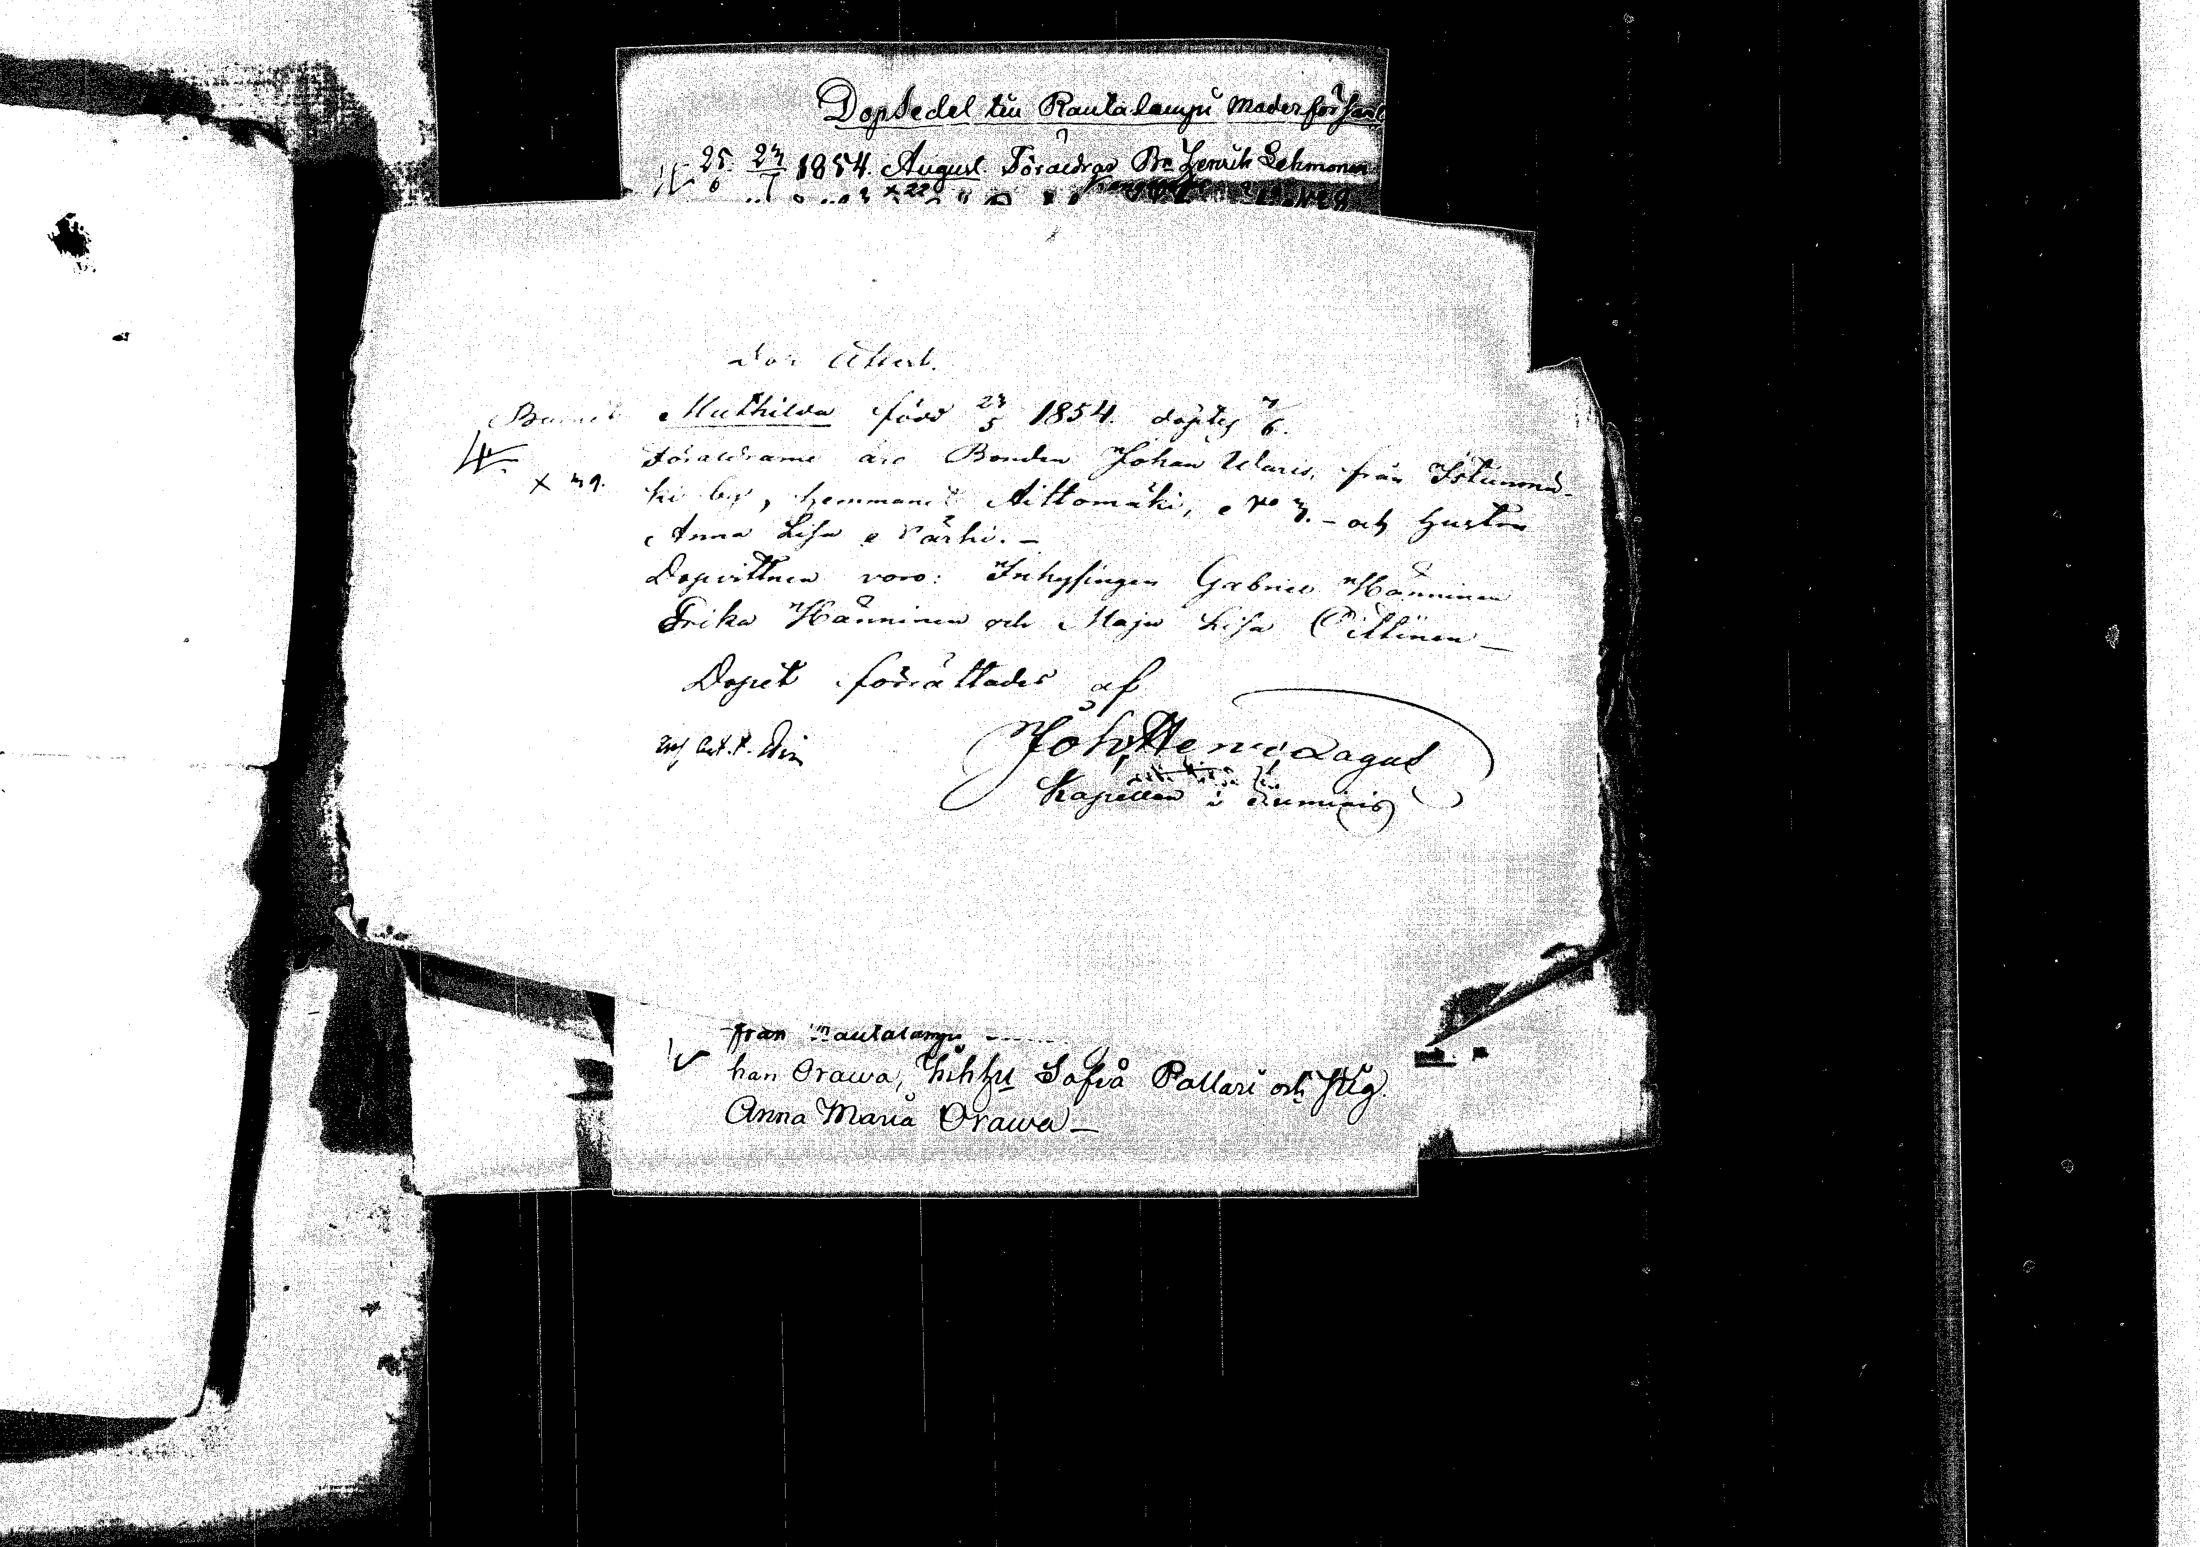 Dopsedel till Rautalampi Moderförsaml
25/6 23/7 1854. August. Föräldrar Bn Henrik Lehmonen
x 22
Dop Attest.
Barnet Mathilda född 23/5 1854. döptes 7/6.
Föräldrarne äro Bonden Johan Waris, från Istunmä-
x 39. ki by, hemmanet Aittomäki, No 3. - och hustru
Anna Lisa Närhi. -
Dopvittnen voro: Inhysingen Gabriel Hänninen
Erika Hänninen och Maja Lisa Pittinen -
Dopet förrättades af
Joh. Henr. Lagus
Kapellan i
från Rautalampi
han Orawa, Sofia Pallari och Pig.
Anna Maria Orawa -